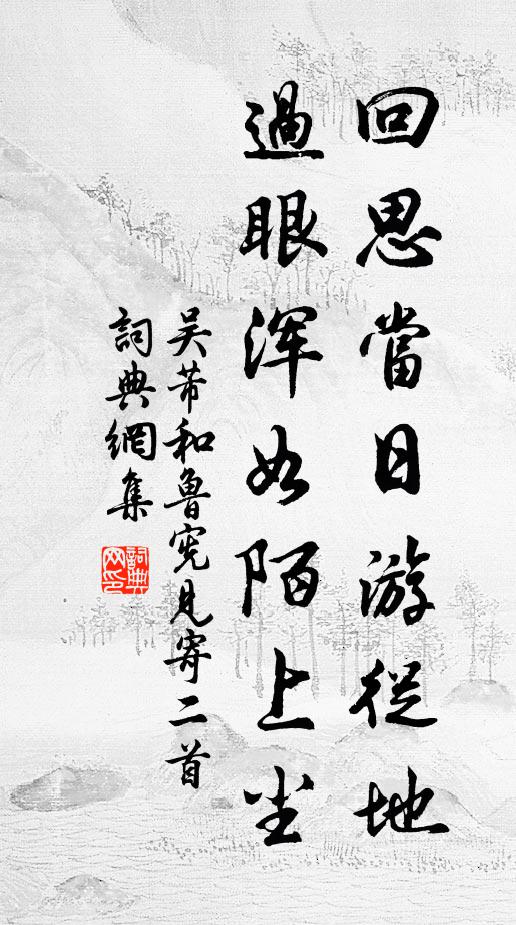 回思當日游從地
過眼浑如陌上尘
吴芾和魯宪见寄二首
詞典網集
詞典网印